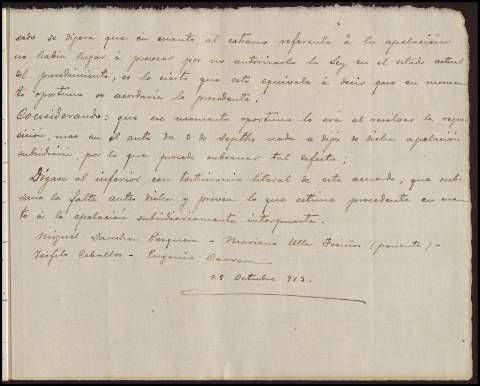 sado se dijera que en cuanto al extremo referente á la apelación
no había lugar á proveer por no autorizarlo la Ley en el estado actual
del procedimiento, es lo cierto que esto equivale á decir que en momen-
to oportuno se acordaría lo procedente.
Considerando: que ese momento oportuno lo era al resolver la repo-
sición, mas en el auto de 3 de Septbre nada se dijo de dicha apelación
subsidiaria, por lo que procede subsanar tal defecto;
Dígase al inferior, con testimonio literal de este acuerdo, que sub-
sane la falta antes dicha y provea lo que estime procedente en cuan-
to á la apelación subsidiariamente interpuesta.
Miguel Sánchez - Mariano Ulla (ponente) -
Ceballos - Eugenio Carrera
28 Octubre 913.